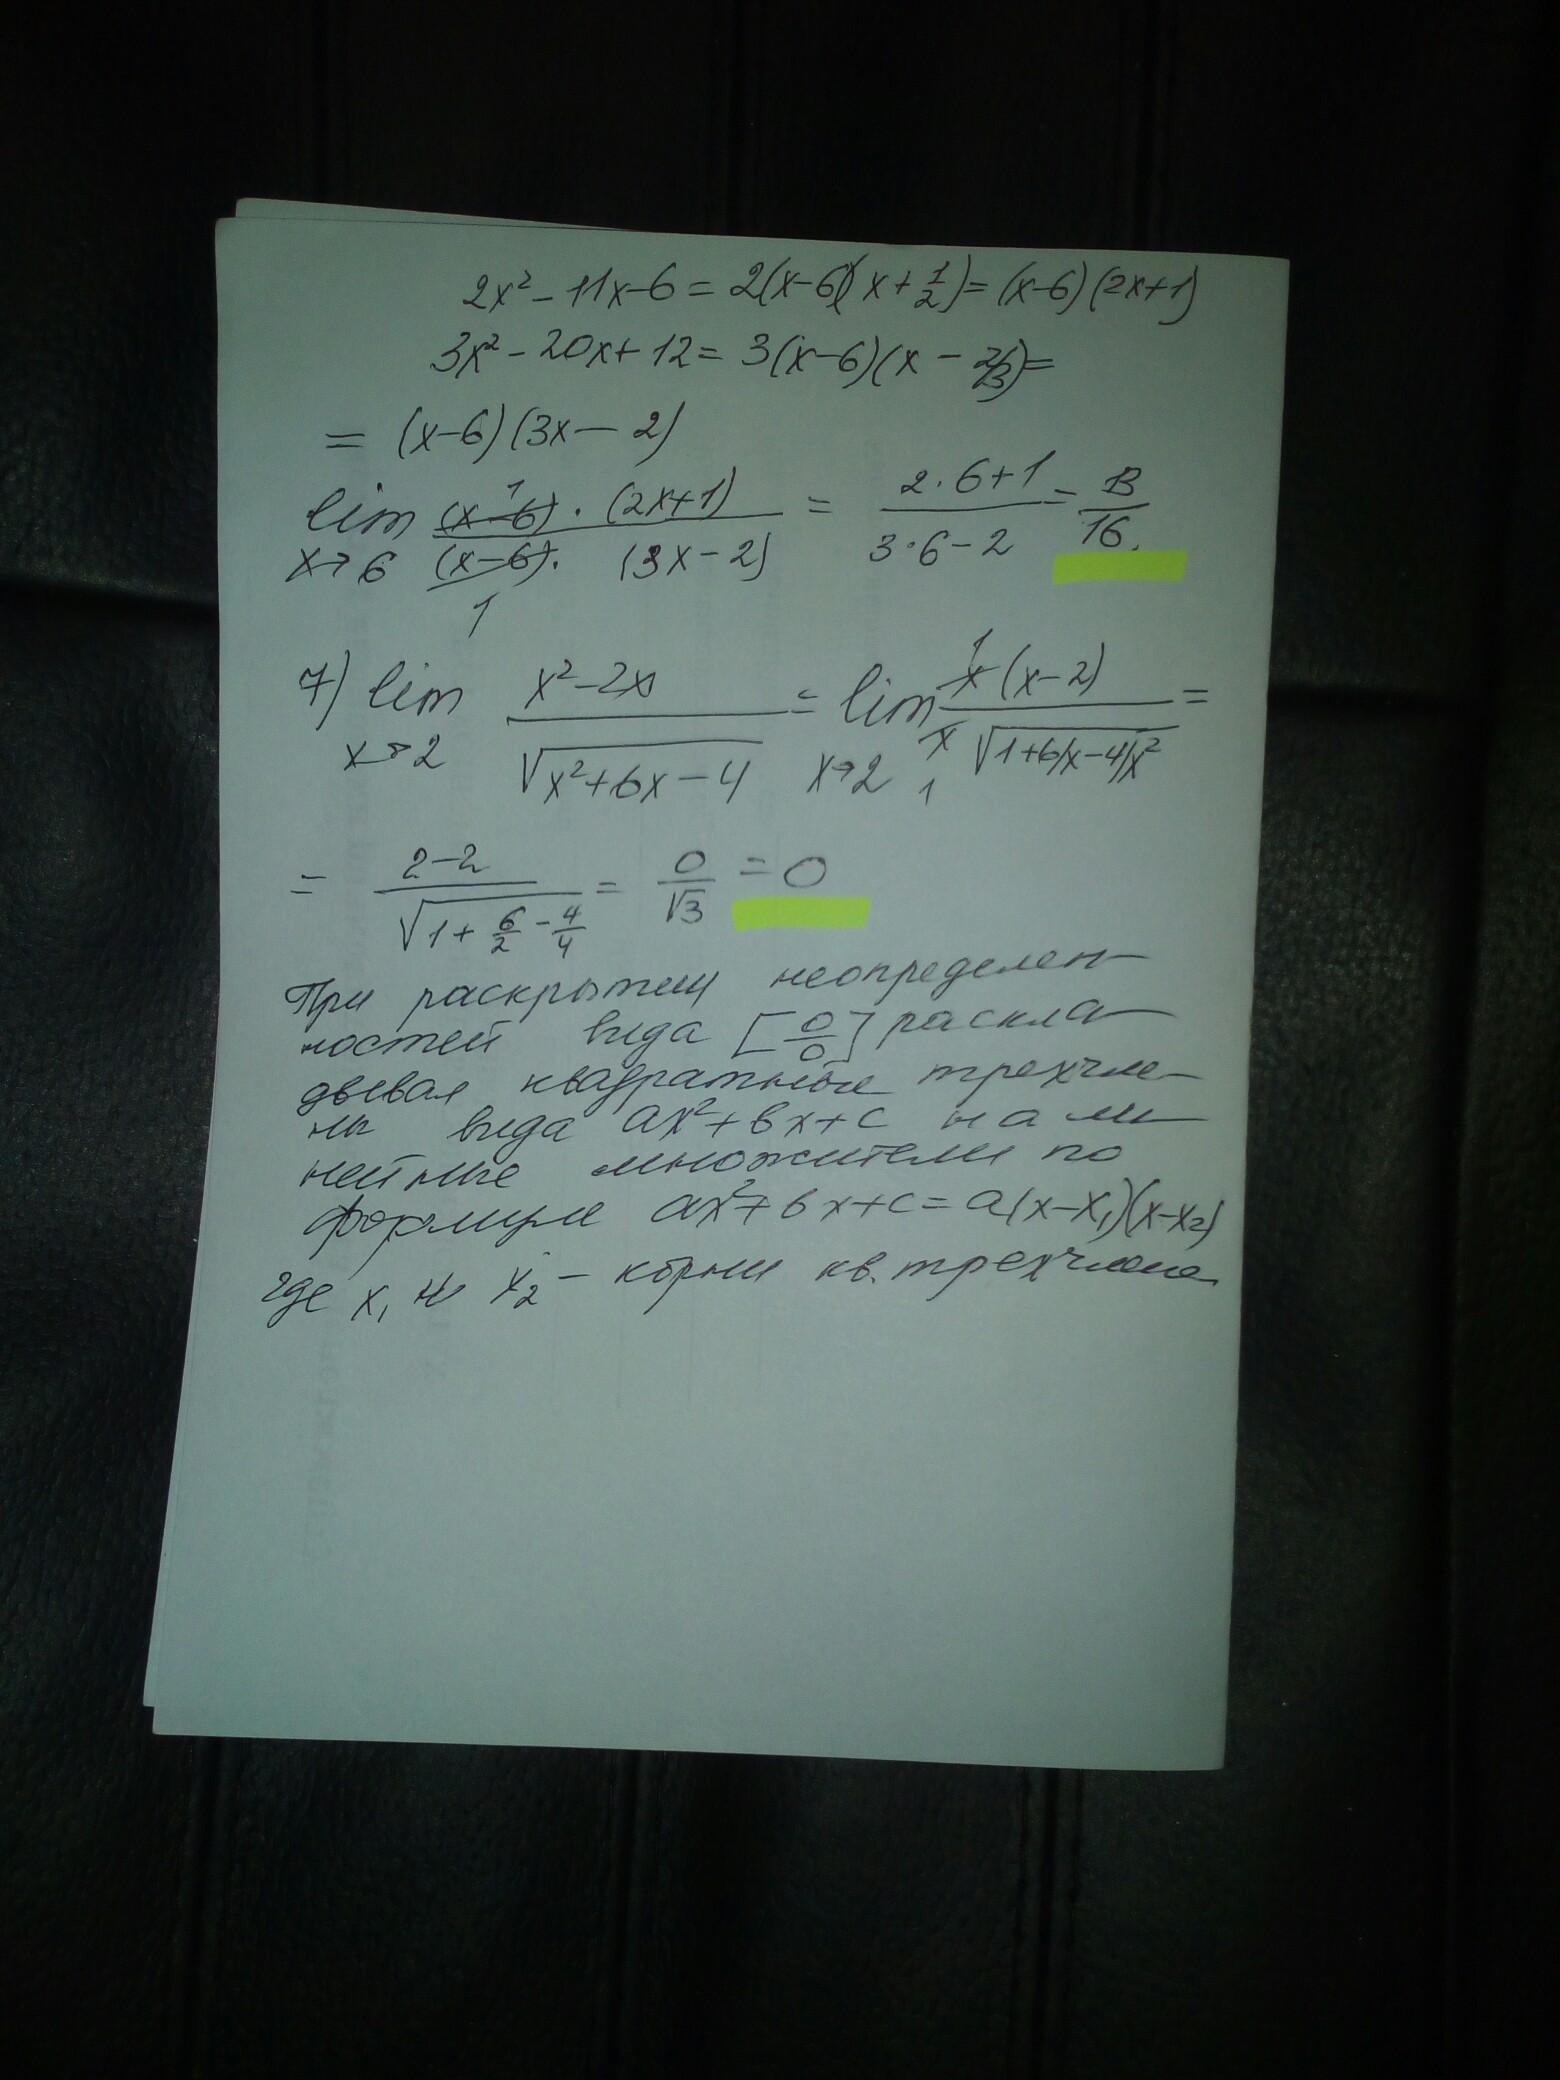 2x² - 11x - 6 = 2(x-6)(x + 1/2) = (x-6)(2x+1)
3x² - 20x + 12 = 3(x-6)(x - 2/3) =
= (x-6)(3x - 2)
lim x→6 (x-6)·(2x+1) / (x-6)·(3x-2) = (2·6+1)/(3·6-2) = 13/16.
1
1
7) lim x→2 (x²-2x)/√(x²+6x-4) = lim x→2 x(x-2) / x√(1+6/x-4/x²) =
1
1
= (2-2)/√(1+6/2-4/4) = 0/√3 = 0
При раскрытии неопределен-
ностей вида [0/0] раскла-
дывая квадратные трехчле-
ны вида ax²+bx+c на ли-
нейные множители по
формуле ax²+bx+c = a(x-x₁)(x-x₂)
где x₁ и x₂ - корни кв. трехчлена